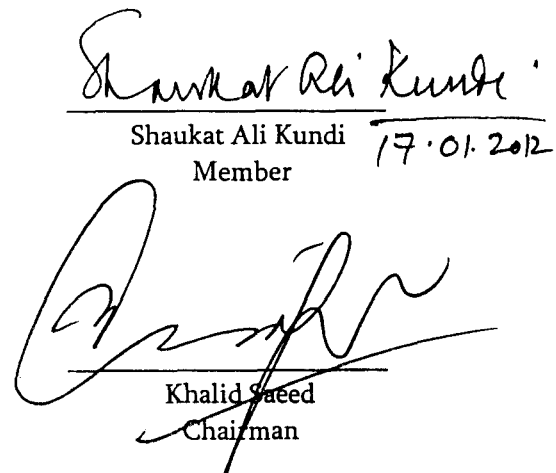 Shaukat Ali Kundi
Shaukat Ali Kundi
17.01.2012
Member
Khalid Saeed
Chairman